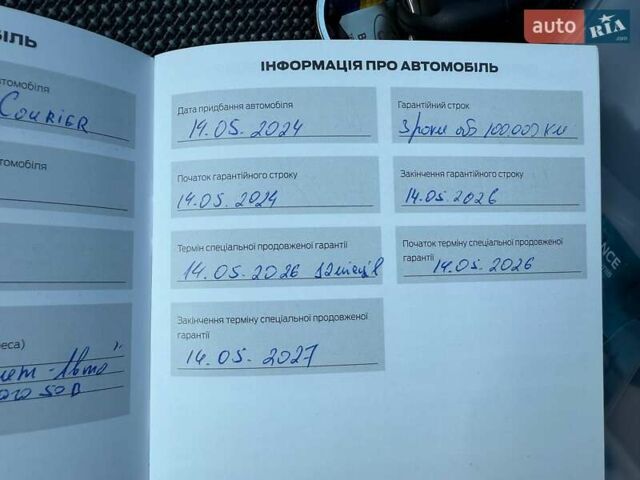 auto RIA.com
БІЛЬ
томобіля
COURIER
томобіля
еса)
50
ІНФОРМАЦІЯ ПРО АВТОМОБІЛЬ
Дата придбання автомобіля
14.05.2024
Гарантійний строк
3 роки або 100.000 км
Початок гарантійного строку
14.05.2024
Закінчення гарантійного строку
14.05.2026
Термін спеціальної продовженої гарантії
14.05.2026 12місяців
Початок терміну спеціальної продовженої
гарантії
14.05.2026
Закінчення терміну спеціальної продовженої
гарантії
14.05.2027